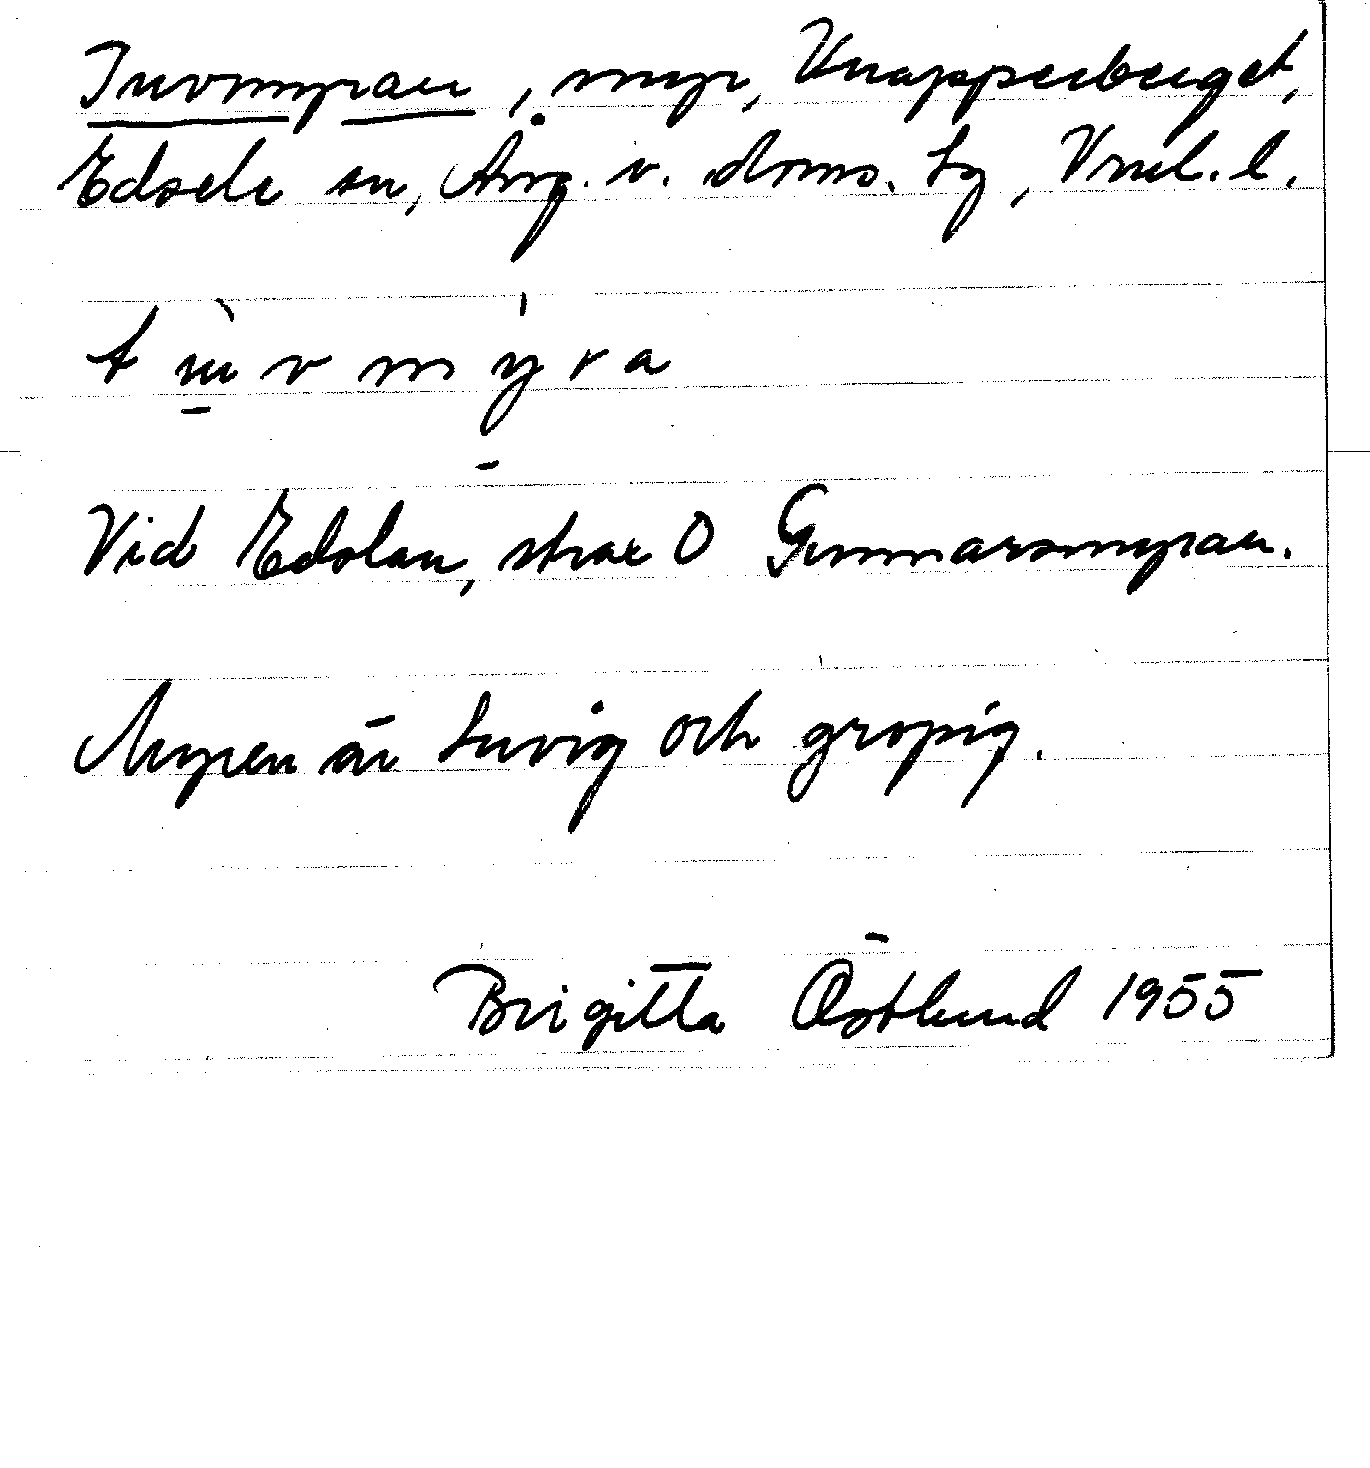 Tuvmyran, myr, Knapperberget,
Edsele sn, Ång. v. doms. tg, Vnl. l.
t ù̱ v m ý̱ r a
Vid Edslan, strax O Gunnarsmyran.
Myren är tuvig och gropig.
Brigitta Östlund 1955